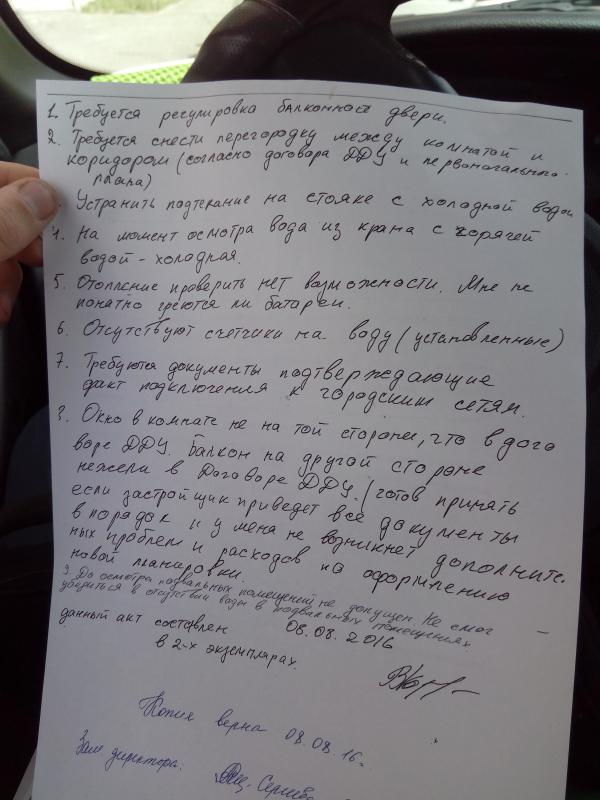 1. Требуется регулировка балконной двери.
2. Требуется снести перегородку между комнатой и
коридором (согласно договора ДДУ и первоначального
плана)
. Устранить подтекание на стояке с холодной водой
4. На момент осмотра вода из крана с горячей
водой - холодная.
5. Отопление проверить нет возможности. Мне не
понятно греются ли батареи.
6. Отсутствуют счетчики на воду (установленные)
7. Требуются документы подтверждающие
факт подключения к городским сетям.
8. Окно в комнате не на той стороне, что в дого
воре ДДУ. Балкон на другой стороне
нежели в Договоре ДДУ. (готов принять
если застройщик приведет все документы
в порядок и у меня не возникнет дополнитель
ных проблем и расходов на оформлению
новой планировки.
9. До осмотра подвальных помещений не допущен. Не смог
убедиться в отсутствии воды в подвальных помещениях
данный акт составлен 08.08.2016
в 2-х экземплярах.
Копия верна 08.08.16г.
Зам. директора: